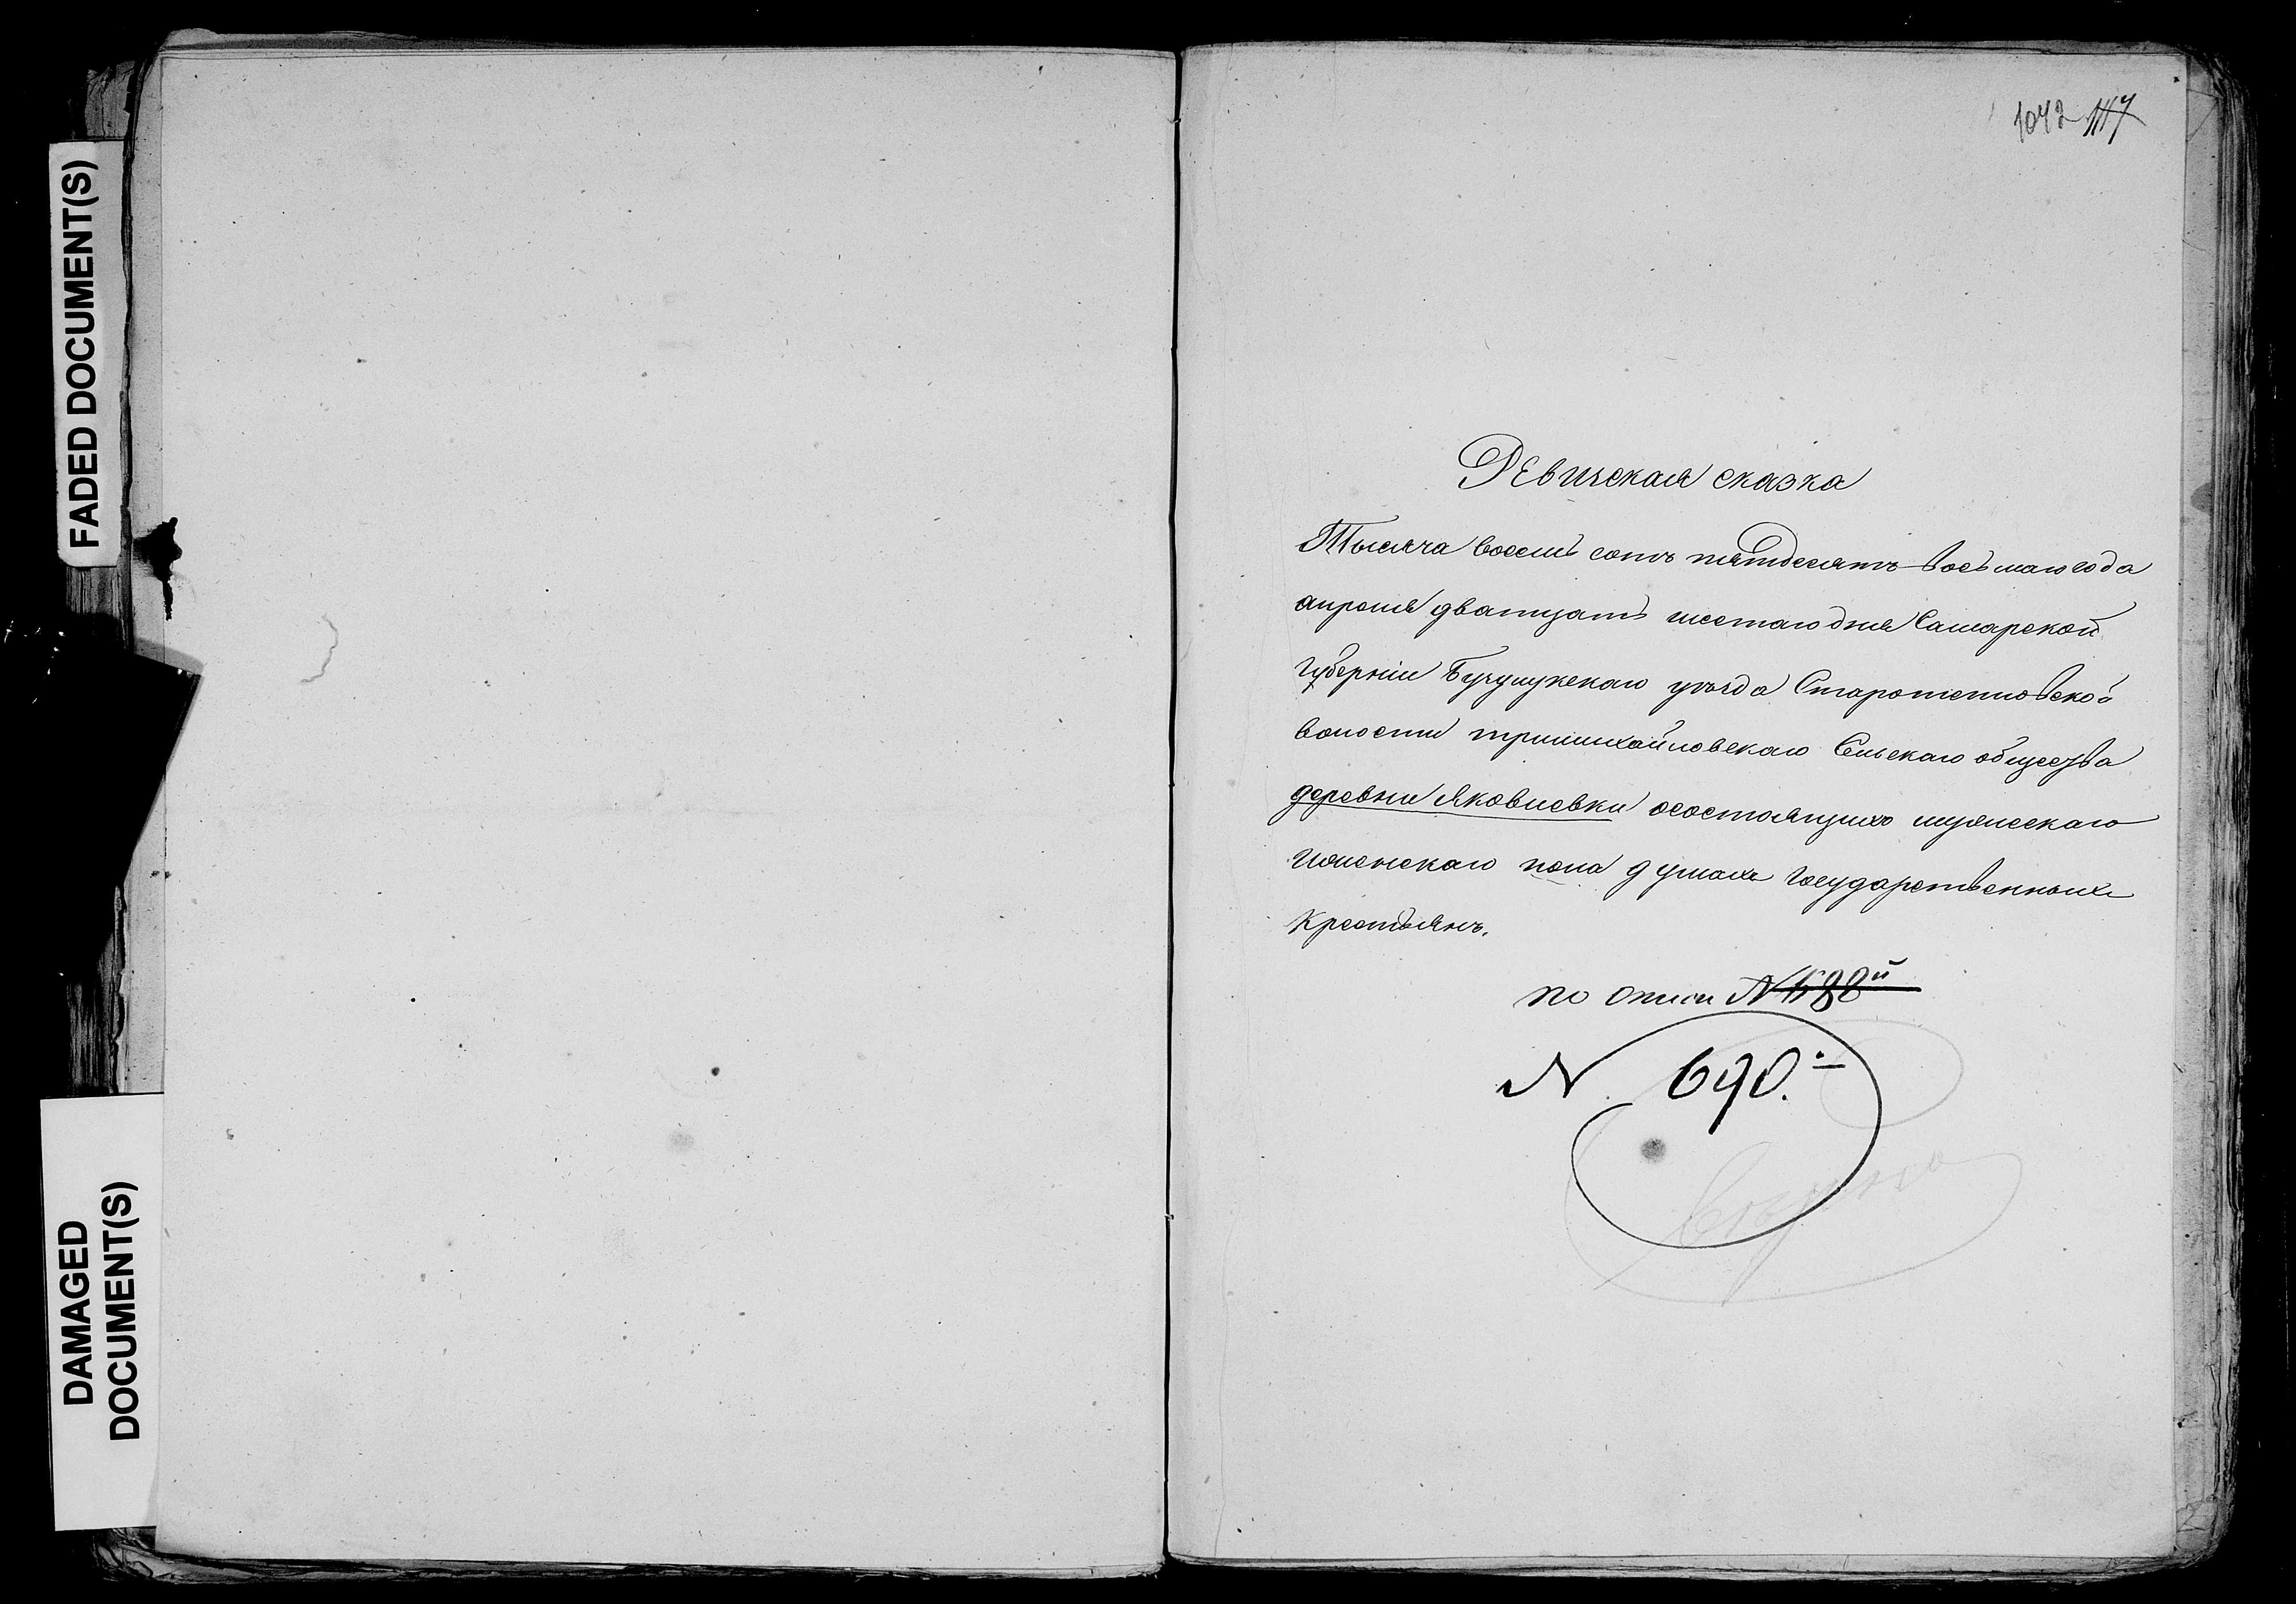 FADED DOCUMENT(S)
DAMAGED
DOCUMENT(S)
1042
Ревиская сказка
Тысяча восемь сотъ пятдесятъ восьмаго года
апреля дватцать шестаго дня Самарской
губерніи Бузулукскаго уѣзда Старотепловской
волости тримихайловскаго Сельскаго общества
деревни Яковлевки осостоящихъ мужескаго
иженскаго пола душахъ государственныхъ
крестьянъ.
по описи N 688й
N 690.й